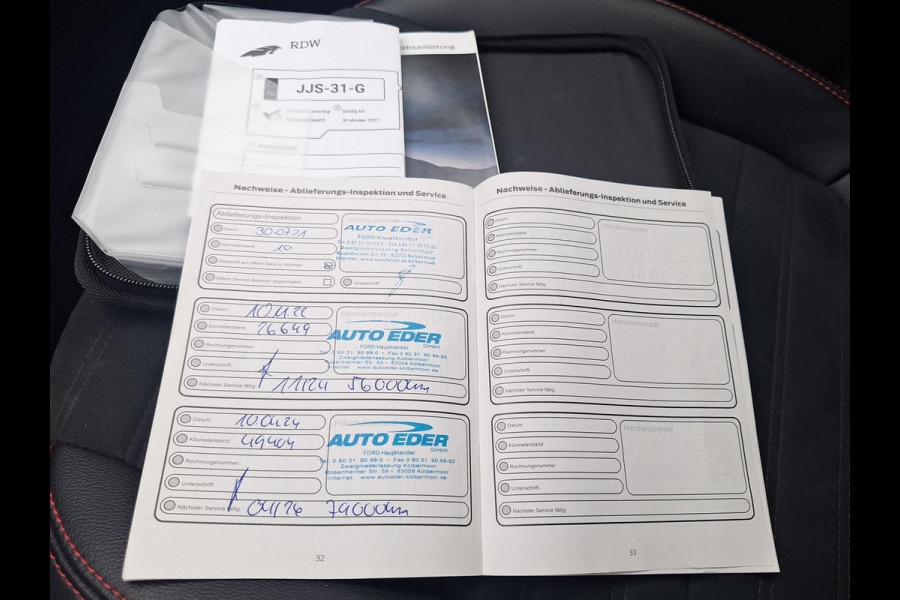 RDW
JJS-31-G
NL
Geldig tot
30 oktober 2027
ebsanleitung
Nachweise - Ablieferungs-Inspektion und Service
Ablieferungs-Inspektion
Datum: 30.07.21
Kilometerstand: 10
Überprüft auf offene Service Aktionen
Offene Service Aktionen abgearbeitet
Unterschrift
AUTO EDER
FORD-Haupthändler
Zweigniederlassung Kolbermoor
Rosenheimer Str. 59 - 83059 Kolbermoor
Datum: 10.11.22
Kilometerstand: 26649
Rechnungsnummer:
Unterschrift:
Nächster Service fällig: 11/24 56000km
Händlerstempel
AUTO EDER
GmbH
FORD-Haupthändler
Tel. 0 80 31 90 99-0 - Fax 0 80 31 90 99-93
Zweigniederlassung Kolbermoor
Rosenheimer Str. 59 - 83059 Kolbermoor
Internet www.autoeder-kolbermoor.de
Datum: 10.04.24
Kilometerstand: 49404
Rechnungsnummer:
Unterschrift:
Nächster Service fällig: 04/26 79000km
AUTO EDER
GmbH
FORD-Haupthändler
Tel. 0 80 31 90 99-0 - Fax 0 80 31 90 99-93
Zweigniederlassung Kolbermoor
Rosenheimer Str. 59 - 83059 Kolbermoor
Internet www.autoeder-kolbermoor.de
32
Nachweise - Ablieferungs-Inspektion und Service
Datum:
Kilometerstand:
Rechnungsnummer
Unterschrift
Nächster Service fällig:
Händlerstempel
Datum:
Kilometerstand:
Rechnungsnummer
Unterschrift:
Nächster Service fällig:
Händlerstempel
Datum:
Kilometerstand
Rechnungsnummer:
Unterschrift:
Nächster Service fällig:
Händlerstempel
33